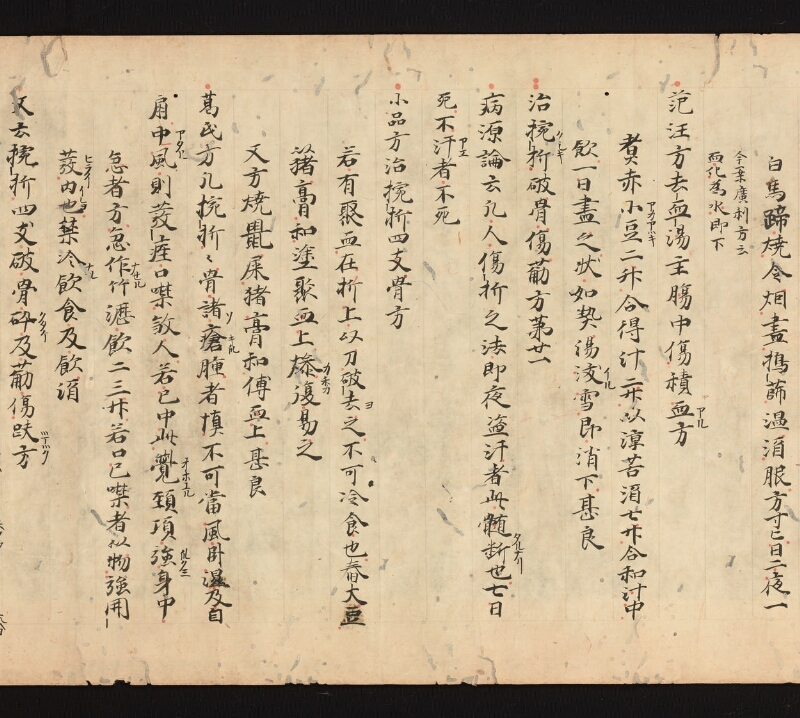 白馬蹄燒令烟盡搗篩温酒服方寸匕日三夜一
今案廣利方云
血化為水即下
范汪方去血湯主腸中傷積血方
煮赤小豆二升合得汁二升以淳苦酒七升合和汁中
飲一日盡之狀如熱湯沃雪即消下甚良
治捥折破骨傷筋方苐廿一
病源論云凡人傷折之法即夜盗汗者此髄断也七日
死不汗者不死
小品方治捥折四支骨方
若有聚血在折上以刀破去之不可冷食也舂大豆
猪膏和塗聚血上燥復易之
又方燒鼠屎猪膏和傅血上甚良
葛氏方凡捥折々骨諸瘡腫者慎不可當風卧濕及自
扇中風則發痓口噤敘人若已中此覺頚項強身中
急者方急作竹瀝飲二三升若口已噤者以物強開
發内也禁冷飲食及飲酒
又云捥折四支破骨碎及筋傷跌方